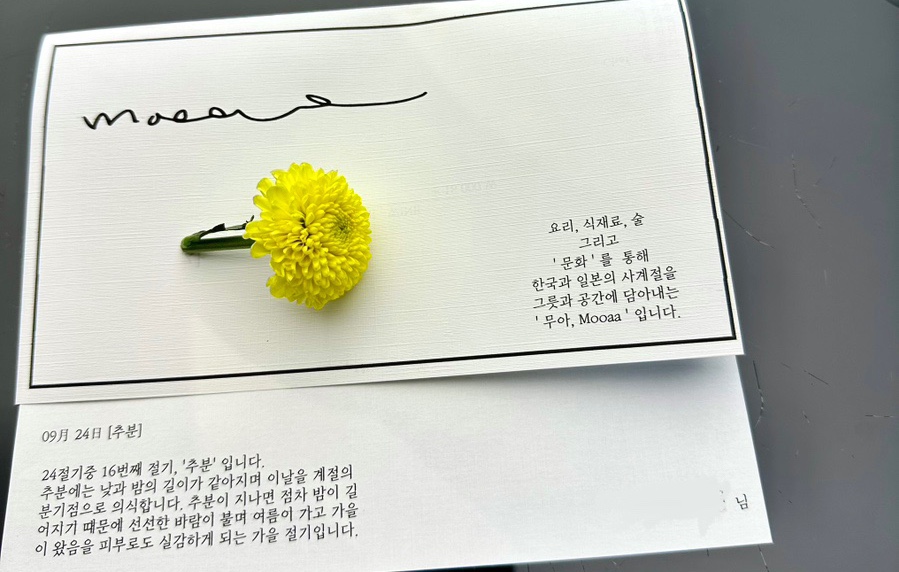 요리, 식재료, 술
그리고
' 문화 ' 를 통해
한국과 일본의 사계절을
그릇과 공간에 담아내는
' 무아, Mooaa ' 입니다.
09月 24日 [추분]
24절기중 16번째 절기, '추분' 입니다.
추분에는 낮과 밤의 길이가 같아지며 이날을 계절의
분기점으로 의식합니다. 추분이 지나면 점차 밤이 길
어지기 때문에 선선한 바람이 불며 여름이 가고 가을
이 왔음을 피부로도 실감하게 되는 가을 절기입니다.
님